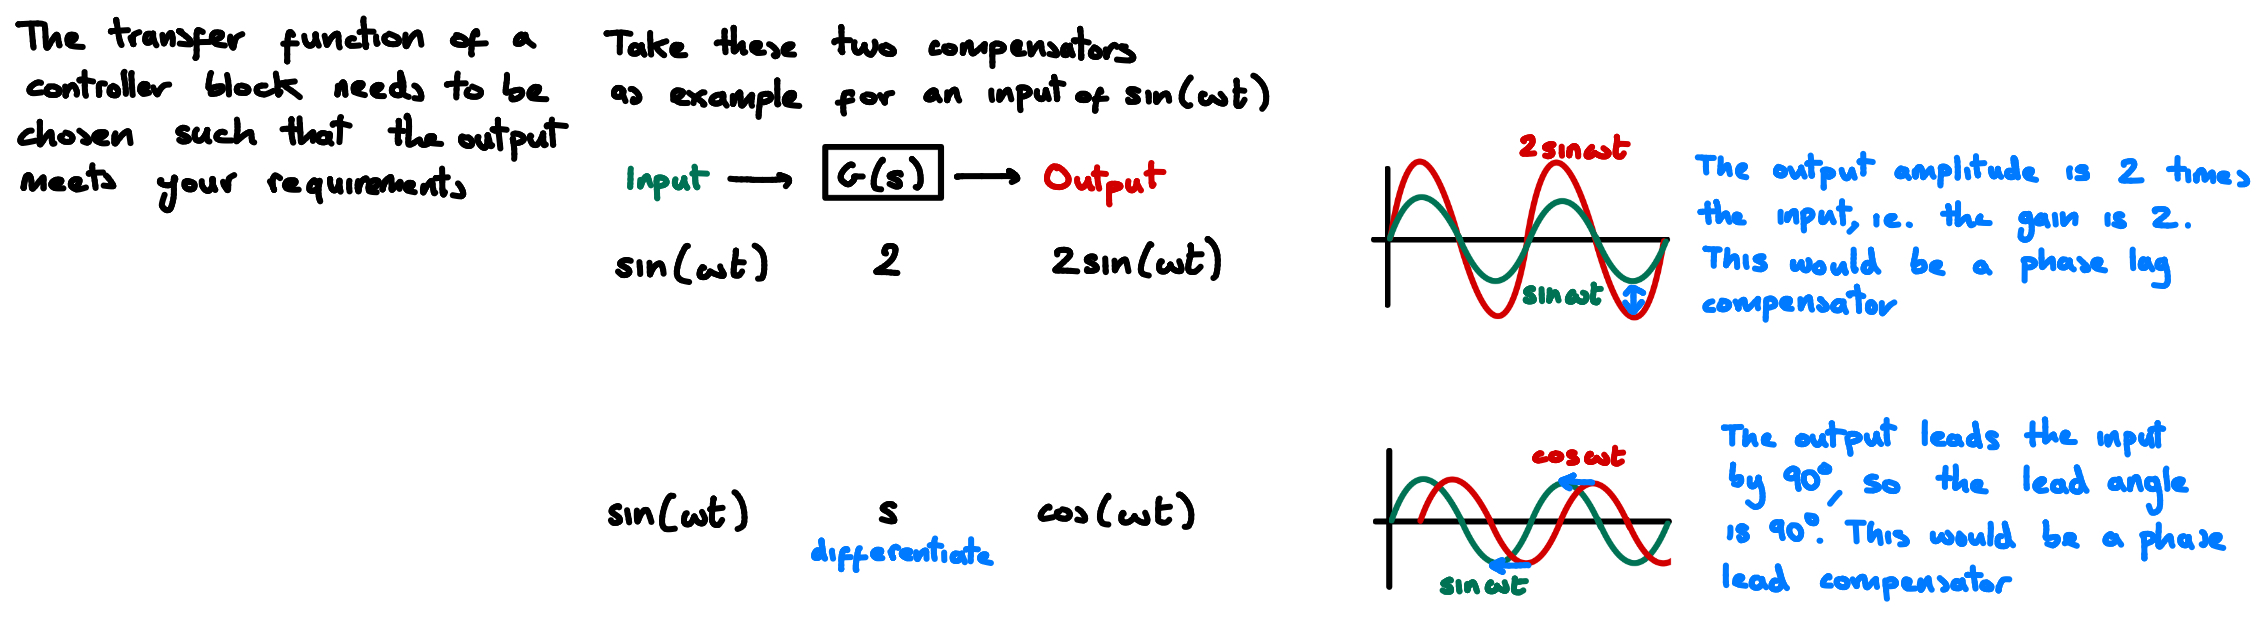 The transfer function of a
controller block needs to be
chosen such that the output
meets your requirements
Take these two compensators
as example for an input of sin(ωt)
Input → G(s) → Output
sin(ωt) 2 2sin(ωt)
2sinωt
sinωt
The output amplitude is 2 times
the input, ie. the gain is 2.
This would be a phase lag
compensator
sin(ωt) s cos(ωt)
differentiate
cosωt
sinωt
The output leads the input
by 90°, so the lead angle
is 90°. This would be a phase
lead compensator